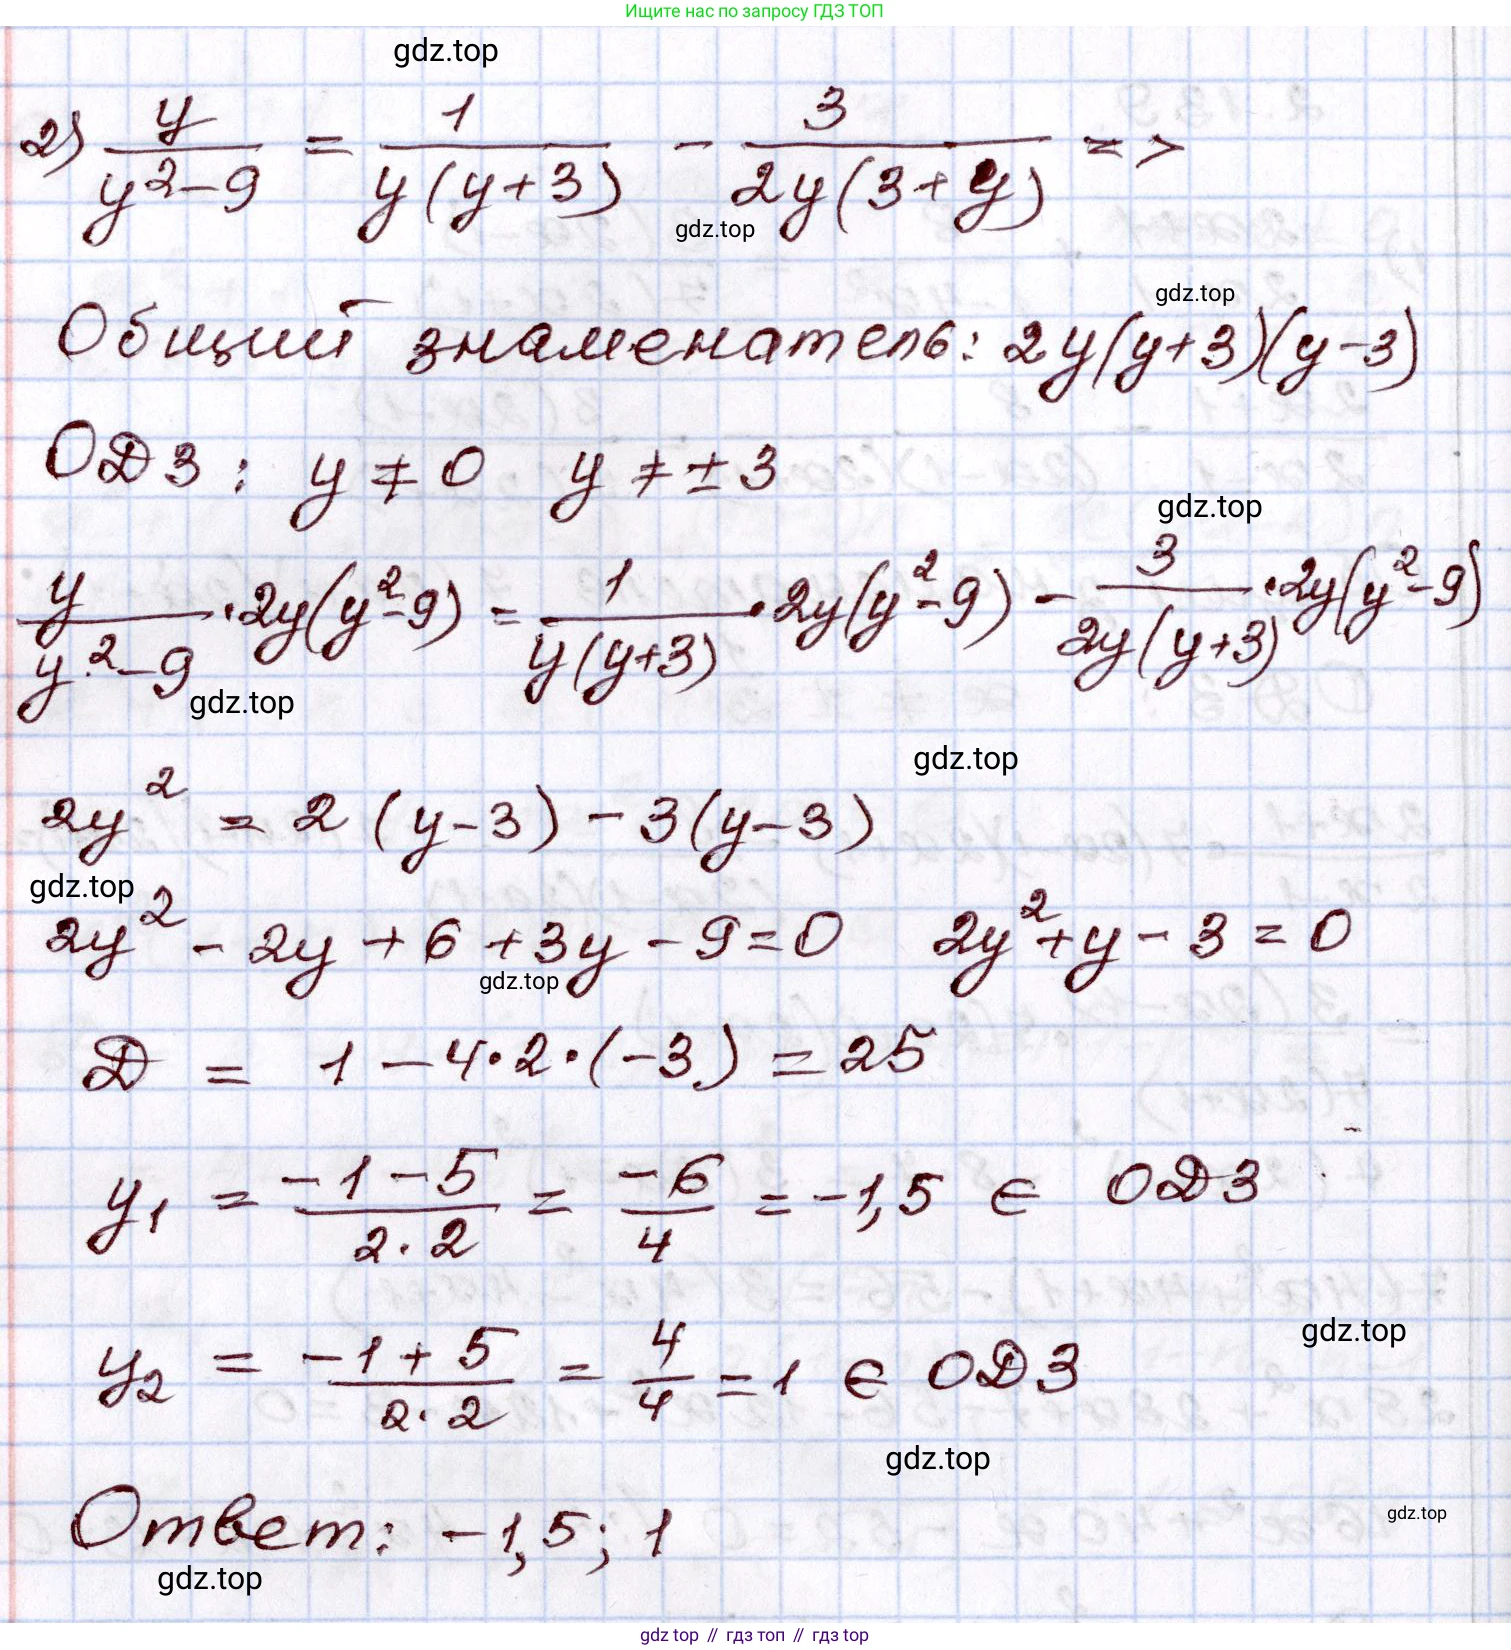 Ищите нас по запросу ГДЗ ТОП
gdz.top
2) y/(y²-9) = 1/(y(y+3)) - 3/(2y(3+y)) =>
gdz.top
gdz.top
Общий знаменатель: 2y(y+3)(y-3)
ОДЗ: y ≠ 0 y ≠ ±3
gdz.top
y/(y²-9) · 2y(y²-9) = 1/(y(y+3)) · 2y(y²-9) - 3/(2y(y+3)) · 2y(y²-9)
gdz.top
gdz.top
2y² = 2(y-3) - 3(y-3)
gdz.top
2y² - 2y + 6 + 3y - 9 = 0 2y² + y - 3 = 0
gdz.top
Д = 1 - 4·2·(-3) = 25
y₁ = (-1-5)/(2·2) = -6/4 = -1,5 ∈ ОДЗ
gdz.top
y₂ = (-1+5)/(2·2) = 4/4 = 1 ∈ ОДЗ
gdz.top
gdz.top
Ответ: -1,5; 1
gdz.top
gdz топ // гдз топ // гдз top